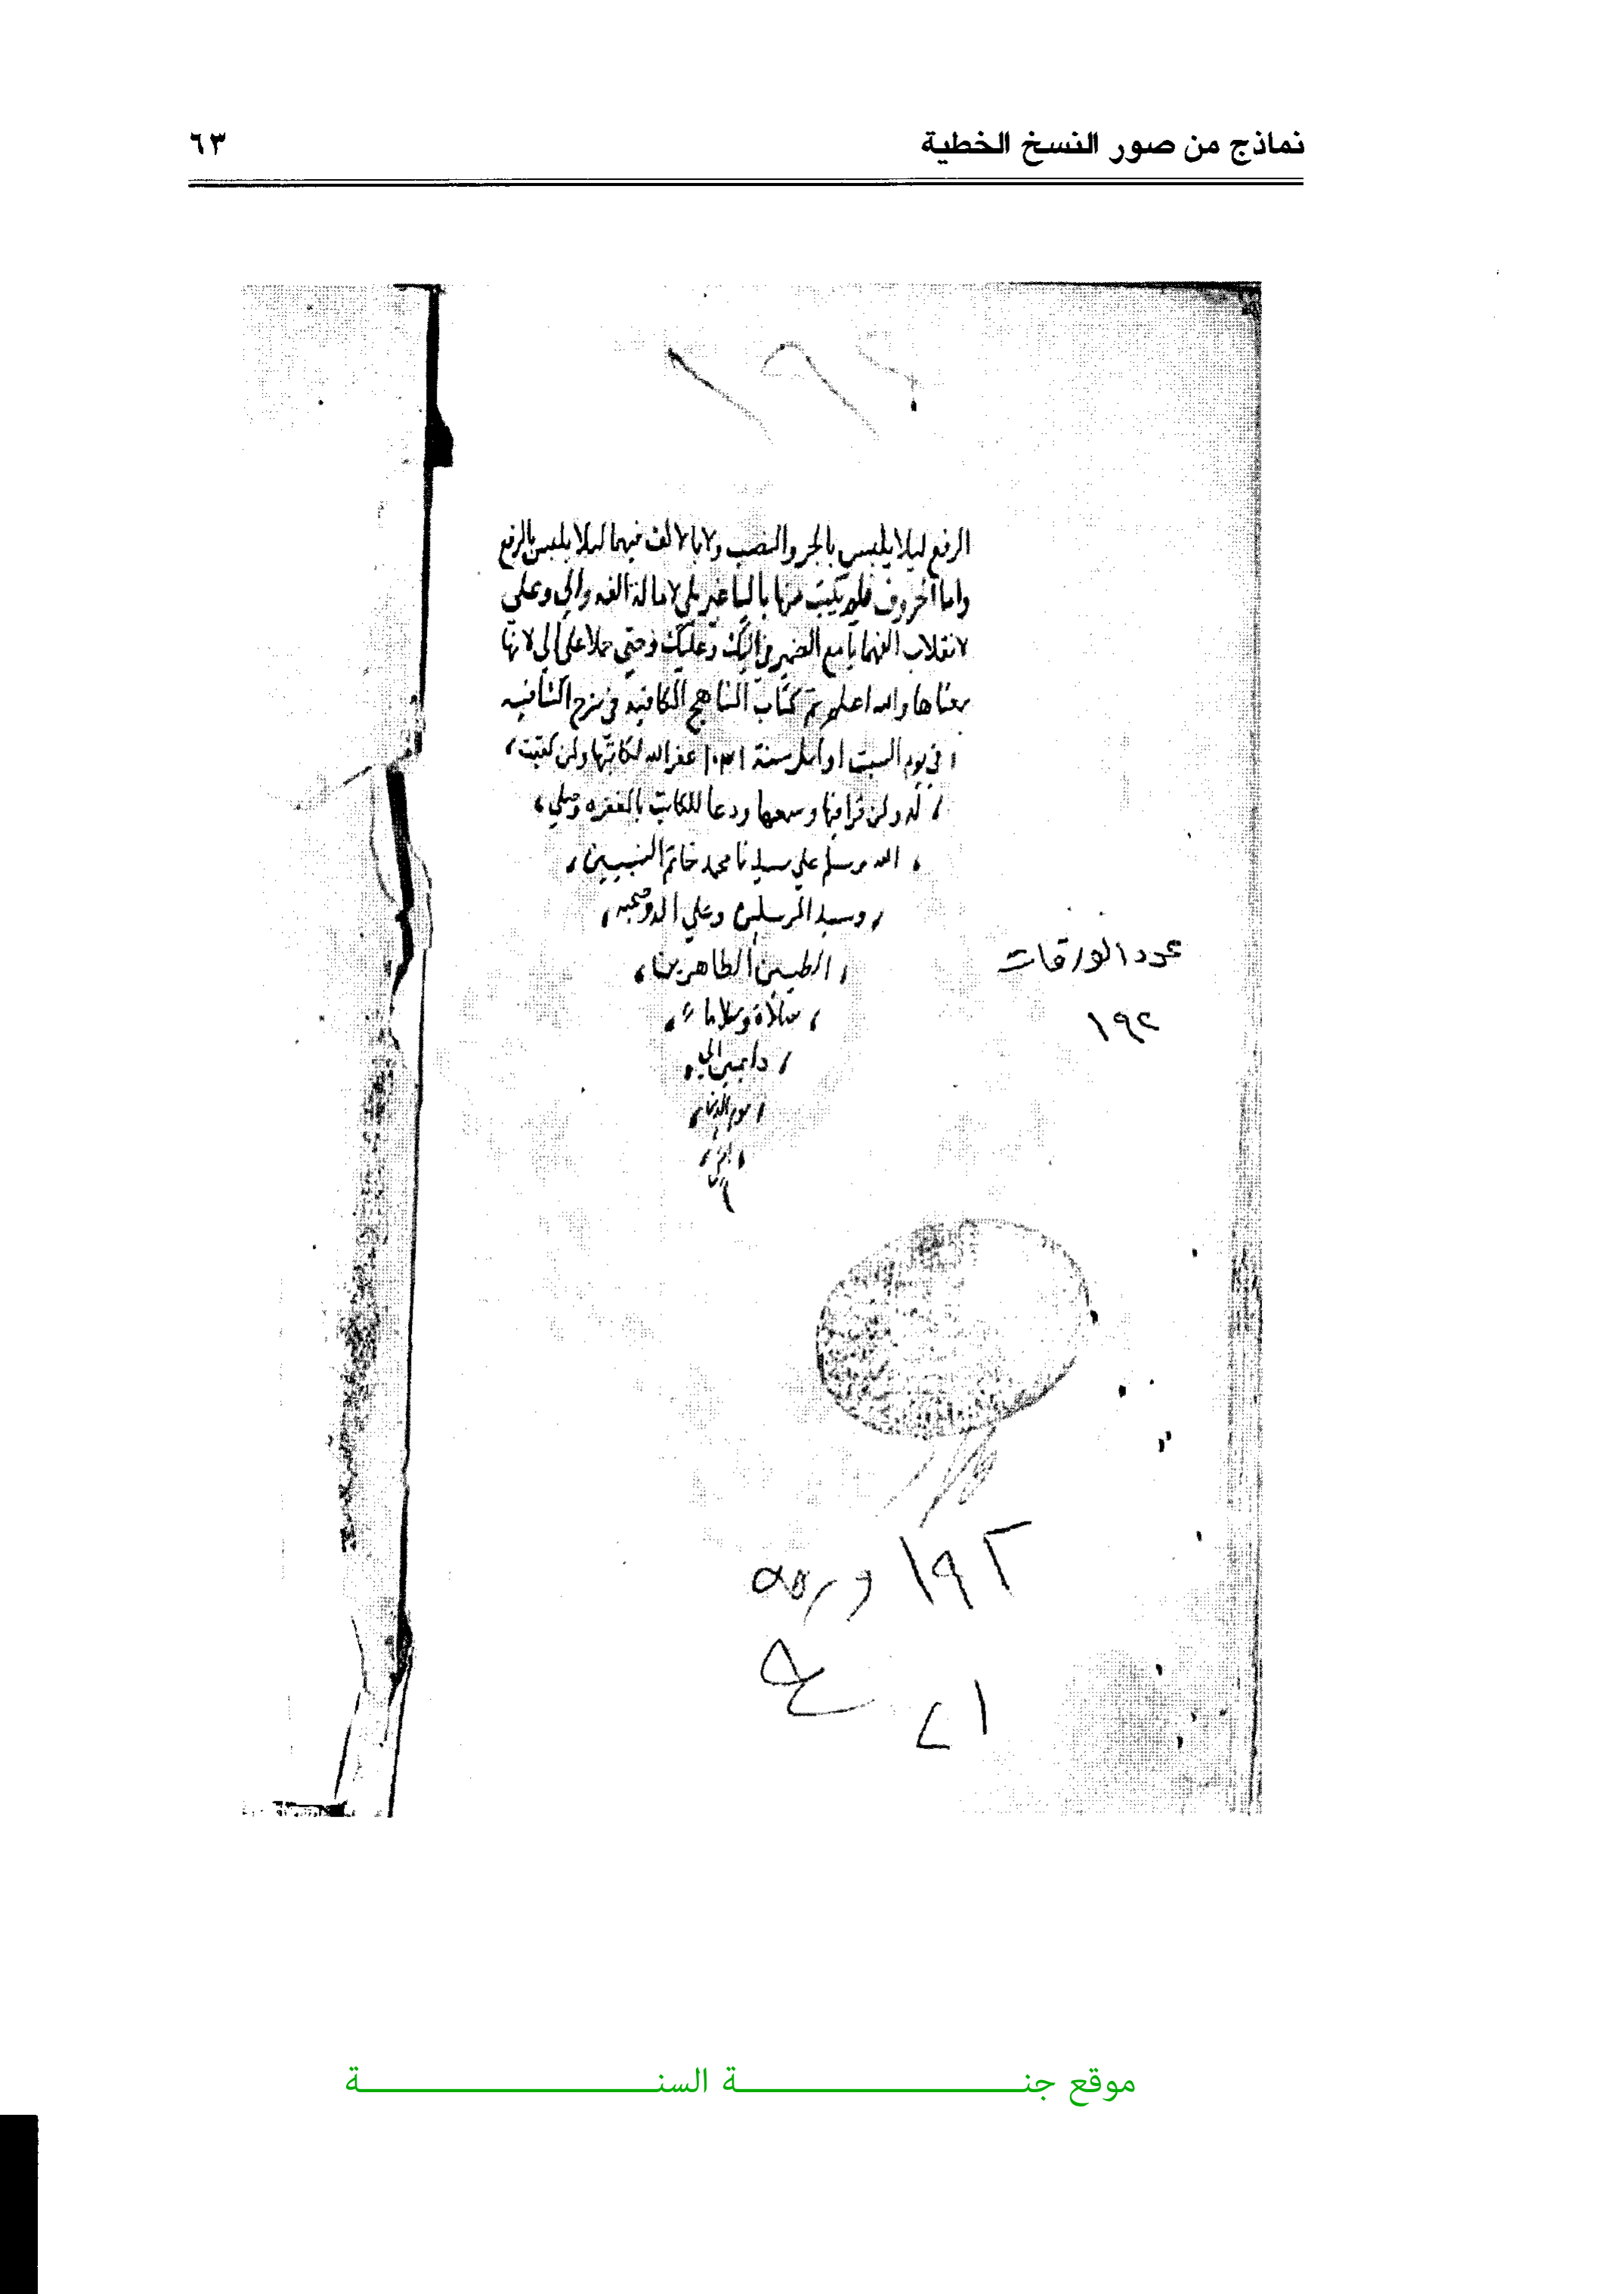 نماذج من صور النسخ الخطية
٦٣
١٩٢
الرفع ليلا يلبس بالجر والنصب ولا بالالف فيهما ليلا يلبس بالرفع
واما الحروف فلم تكتب منها باليا غير بلي لامالة الفه والي وعلي
لانقلاب الفهما يا مع الضمير في اليك وعليك وحتي حملا علي الي لانها
بمعناها والله اعلم تم كتاب المناهج الكافيه في شرح الشافيه
في يوم السبت اوايل سنة ١٠٣١ غفر الله لكاتبها ولمن كتبت
له ولمن قرا فيها وسمعها ودعا للكاتب بالمغفره وصلي
الله وسلم علي سيدنا محمد خاتم النبيين
وسيد المرسلين وعلي اله وصحبه
الطيبين الطاهرين
صلاة وسلاما
دايمين الي
يوم الدين
عدد الورقات
١٩٢
١٩٢ ورقه
موقع جنـــة السنـــة